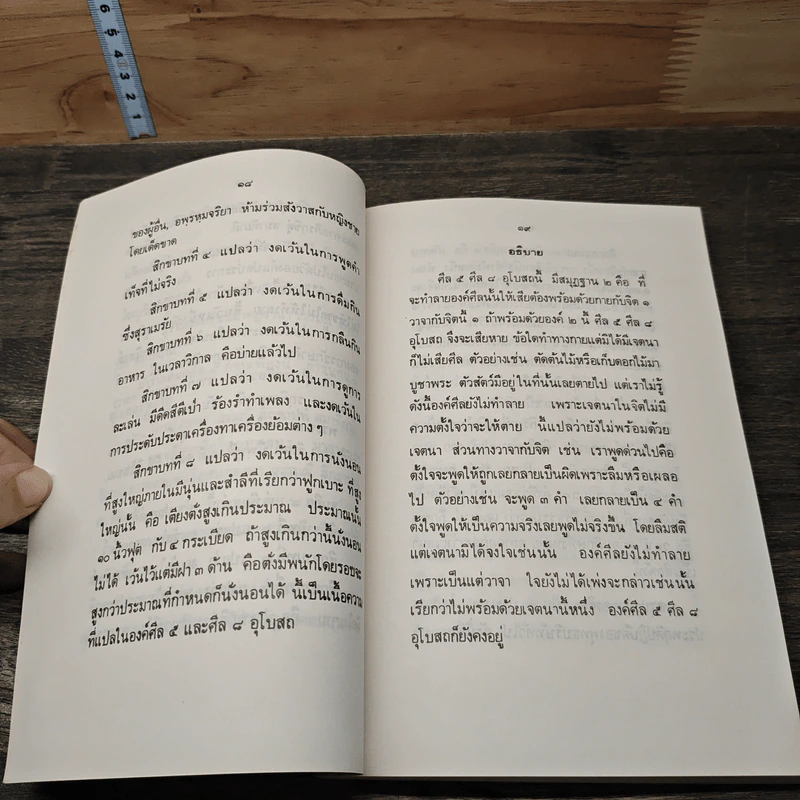 ๑๘
ของผู้อื่น, อพฺรหฺมจริยา ห้ามร่วมสังวาสกับหญิงชาย
โดยเด็ดขาด
สิกขาบทที่ ๔ แปลว่า งดเว้นในการพูดคำ
เท็จที่ไม่จริง
สิกขาบทที่ ๕ แปลว่า งดเว้นในการดื่มกิน
ซึ่งสุราเมรัย
สิกขาบทที่ ๖ แปลว่า งดเว้นในการกลืนกิน
อาหาร ในเวลาวิกาล คือบ่ายแล้วไป
สิกขาบทที่ ๗ แปลว่า งดเว้นในการดูการ
ละเล่น มีดีดสีตีเป่า ร้องรำทำเพลง และงดเว้นใน
การประดับประดาเครื่องทาเครื่องย้อมต่าง ๆ
สิกขาบทที่ ๘ แปลว่า งดเว้นในการนั่งนอน
ที่สูงใหญ่ภายในมีนุ่นและสำลีที่เรียกว่าฟูกเบาะ ที่สูง
ใหญ่นั้น คือ เตียงตั่งสูงเกินประมาณ ประมาณนั้น
๑๐ นิ้วฟุต กับ ๔ กระเบียด ถ้าสูงเกินกว่านี้นั่งนอน
ไม่ได้ เว้นไว้แต่มีฝา ๓ ด้าน คือตั่งมีพนักโดยรอบจะ
สูงกว่าประมาณที่กำหนดก็นั่งนอนได้ นี้เป็นเนื้อความ
ที่แปลในองค์ศีล ๕ และศีล ๘ อุโบสถ
๑๙
อธิบาย
ศีล ๕ ศีล ๘ อุโบสถนี้ มีสมุฏฐาน ๒ คือ ที่
จะทำลายองค์ศีลนั้นให้เสียต้องพร้อมด้วยกายกับจิต ๑
วาจากับจิตนี้ ๑ ถ้าพร้อมด้วยองค์ ๒ นี้ ศีล ๕ ศีล ๘
อุโบสถ จึงจะเสียหาย ข้อใดทำทางกายแต่มิได้มีเจตนา
ก็ไม่เสียศีล ตัวอย่างเช่น ตัดต้นไม้หรือเก็บดอกไม้มา
บูชาพระ ตัวสัตว์มีอยู่ในที่นั้นเลยตายไป แต่เราไม่รู้
ดังนี้องค์ศีลยังไม่ทำลาย เพราะเจตนาในจิตไม่มี
ความตั้งใจว่าจะให้ตาย นี้แปลว่ายังไม่พร้อมด้วย
เจตนา ส่วนทางวาจากับจิต เช่น เราพูดด่วนไปคือ
ตั้งใจจะพูดให้ถูกเลยกลายเป็นผิดเพราะลืมหรือเผลอ
ไป ตัวอย่างเช่น จะพูด ๓ คำ เลยกลายเป็น ๔ คำ
ตั้งใจพูดให้เป็นความจริงเลยพูดไม่จริงขึ้น โดยลืมสติ
แต่เจตนามิได้จงใจเช่นนั้น องค์ศีลยังไม่ทำลาย
เพราะเป็นแต่วาจา ใจยังไม่ได้เพ่งจะกล่าวเช่นนั้น
เรียกว่าไม่พร้อมด้วยเจตนานี้หนึ่ง องค์ศีล ๕ ศีล ๘
อุโบสถก็ยังคงอยู่
6 5 4 3 2 1